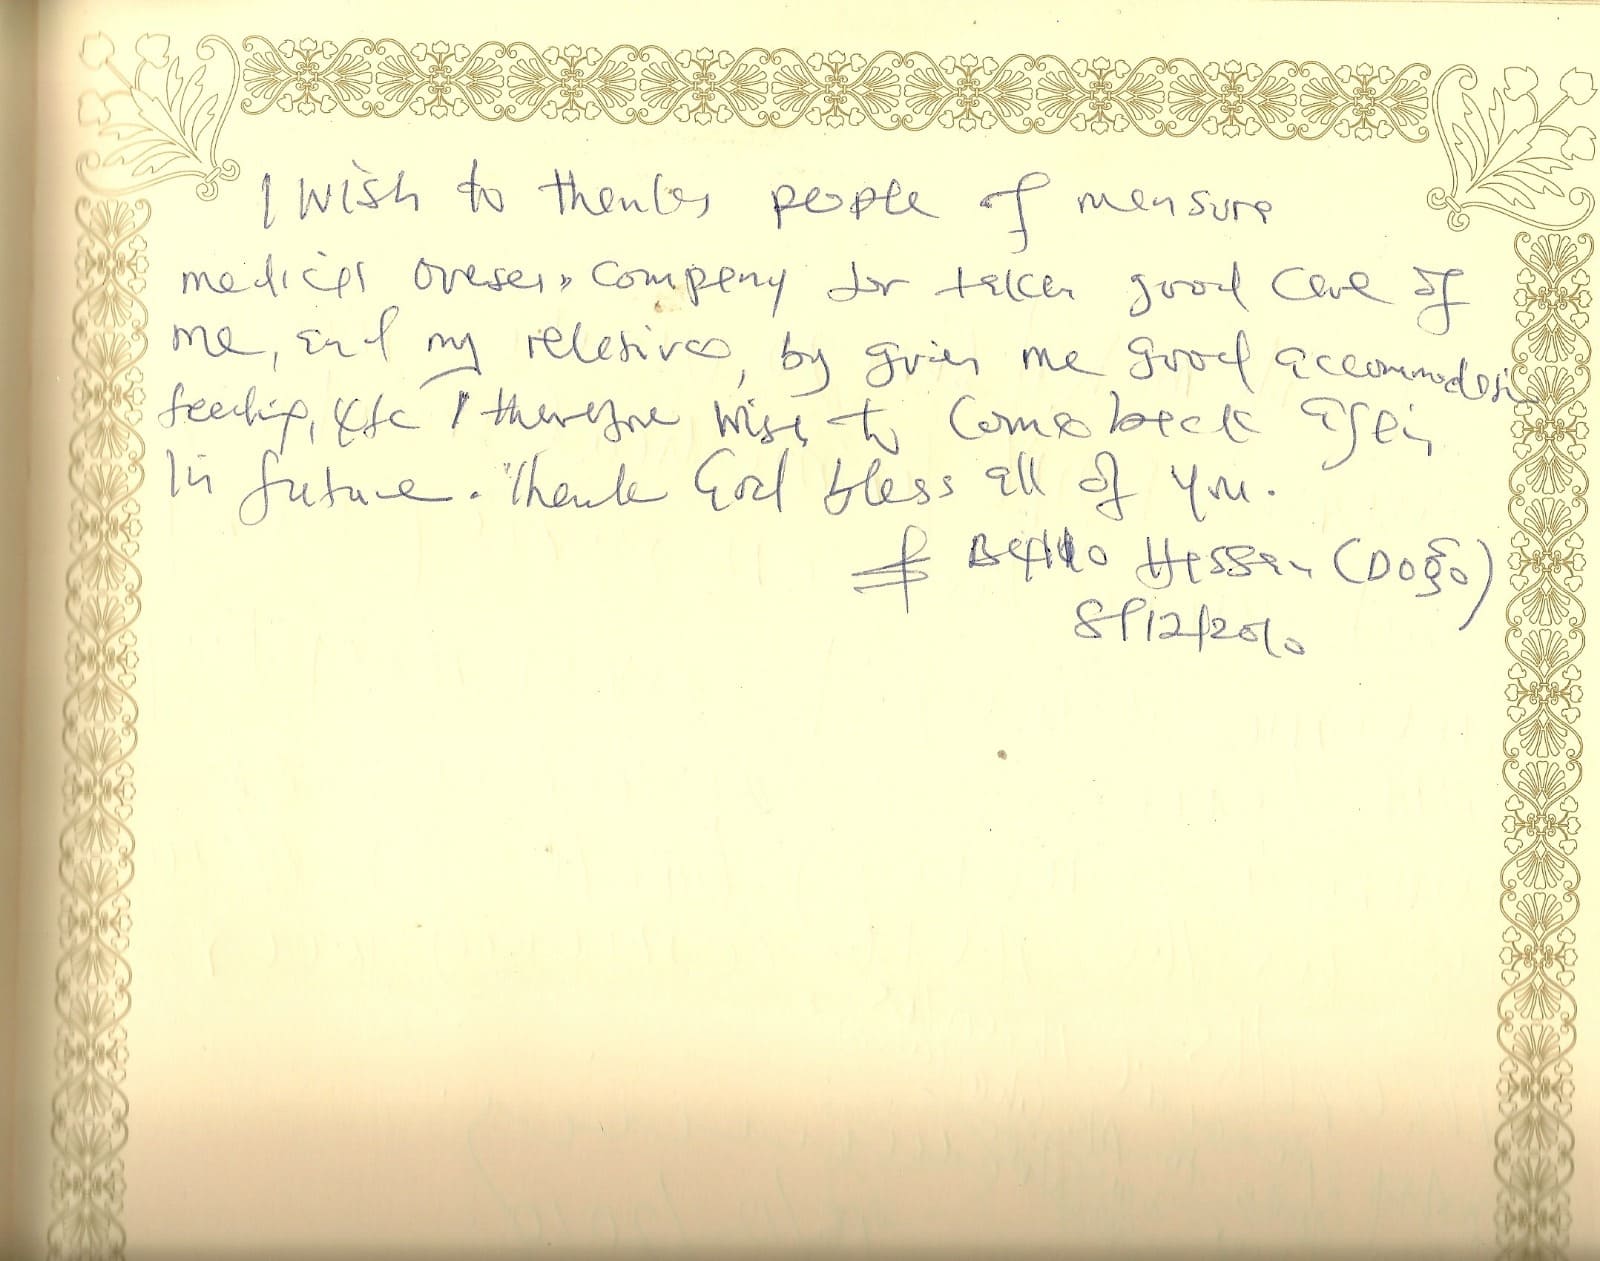 I wish to thanks people of mensure
medical oveseis company for taken good care of
me, and my relatives, by given me good accommodatio
feeding, etc I therefore wish to come back again
in future. Thank God bless all of you.
Bello Hassan (Dogo)
8/12/2010